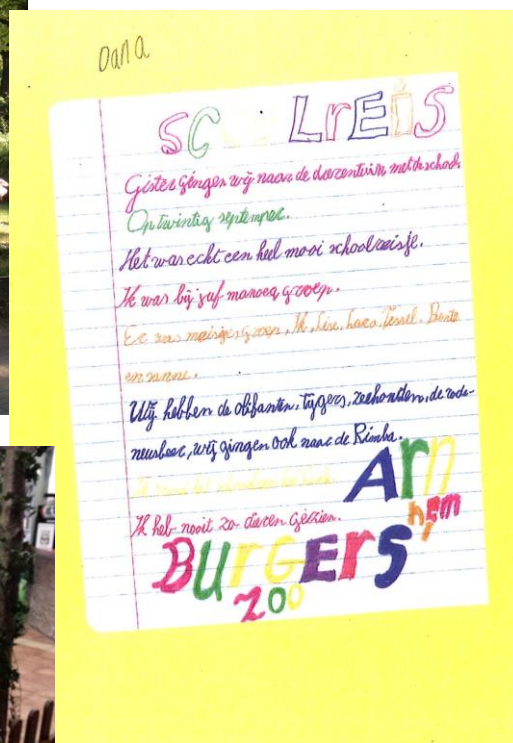 Dana
SCHOOLrEIS
Gister gingen wij naar de dierentuin met de school.
Op twintig septemper.
Het was echt een heel mooi schoolreisje.
Ik was bij juf manoeq groep.
Er was meisjesgroep, Ik, Lise, Lara, Jessel, Bente
en sanne.
Wij hebben de olifanten, tijgers, zeehonden, de rode-
neusbeer, wij gingen ook naar de Rimba.
Ik heb nooit zo dieren gezien.
Arnhem
BUrGErS
zoo